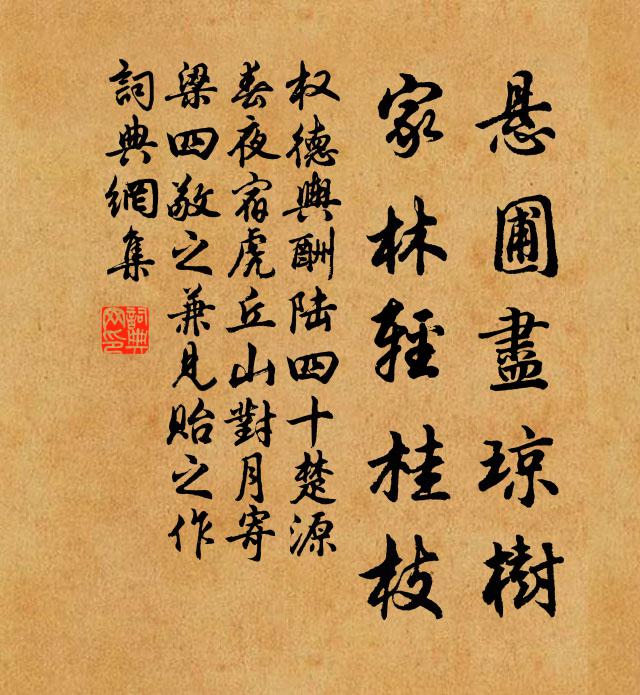 悬圃盡琼樹
家林輕桂枝
权德輿酬陆四十楚源
春夜宿虎丘山對月寄
梁四敬之兼見貽之作
詞典網集
詞典網印